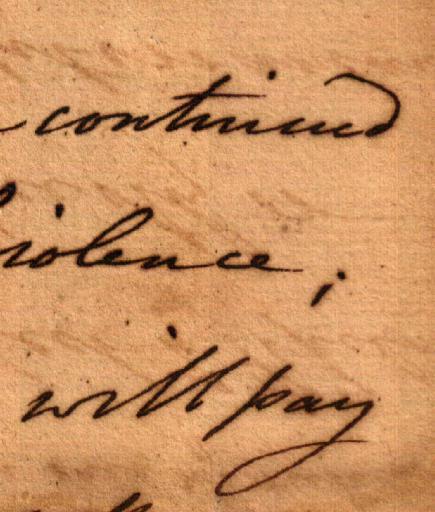 continued
violence;
will pay